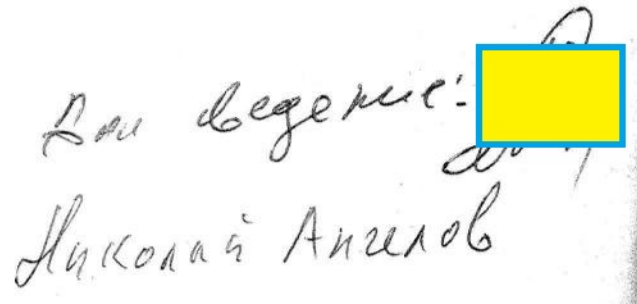 Дал сведение:
Николай Ангелов